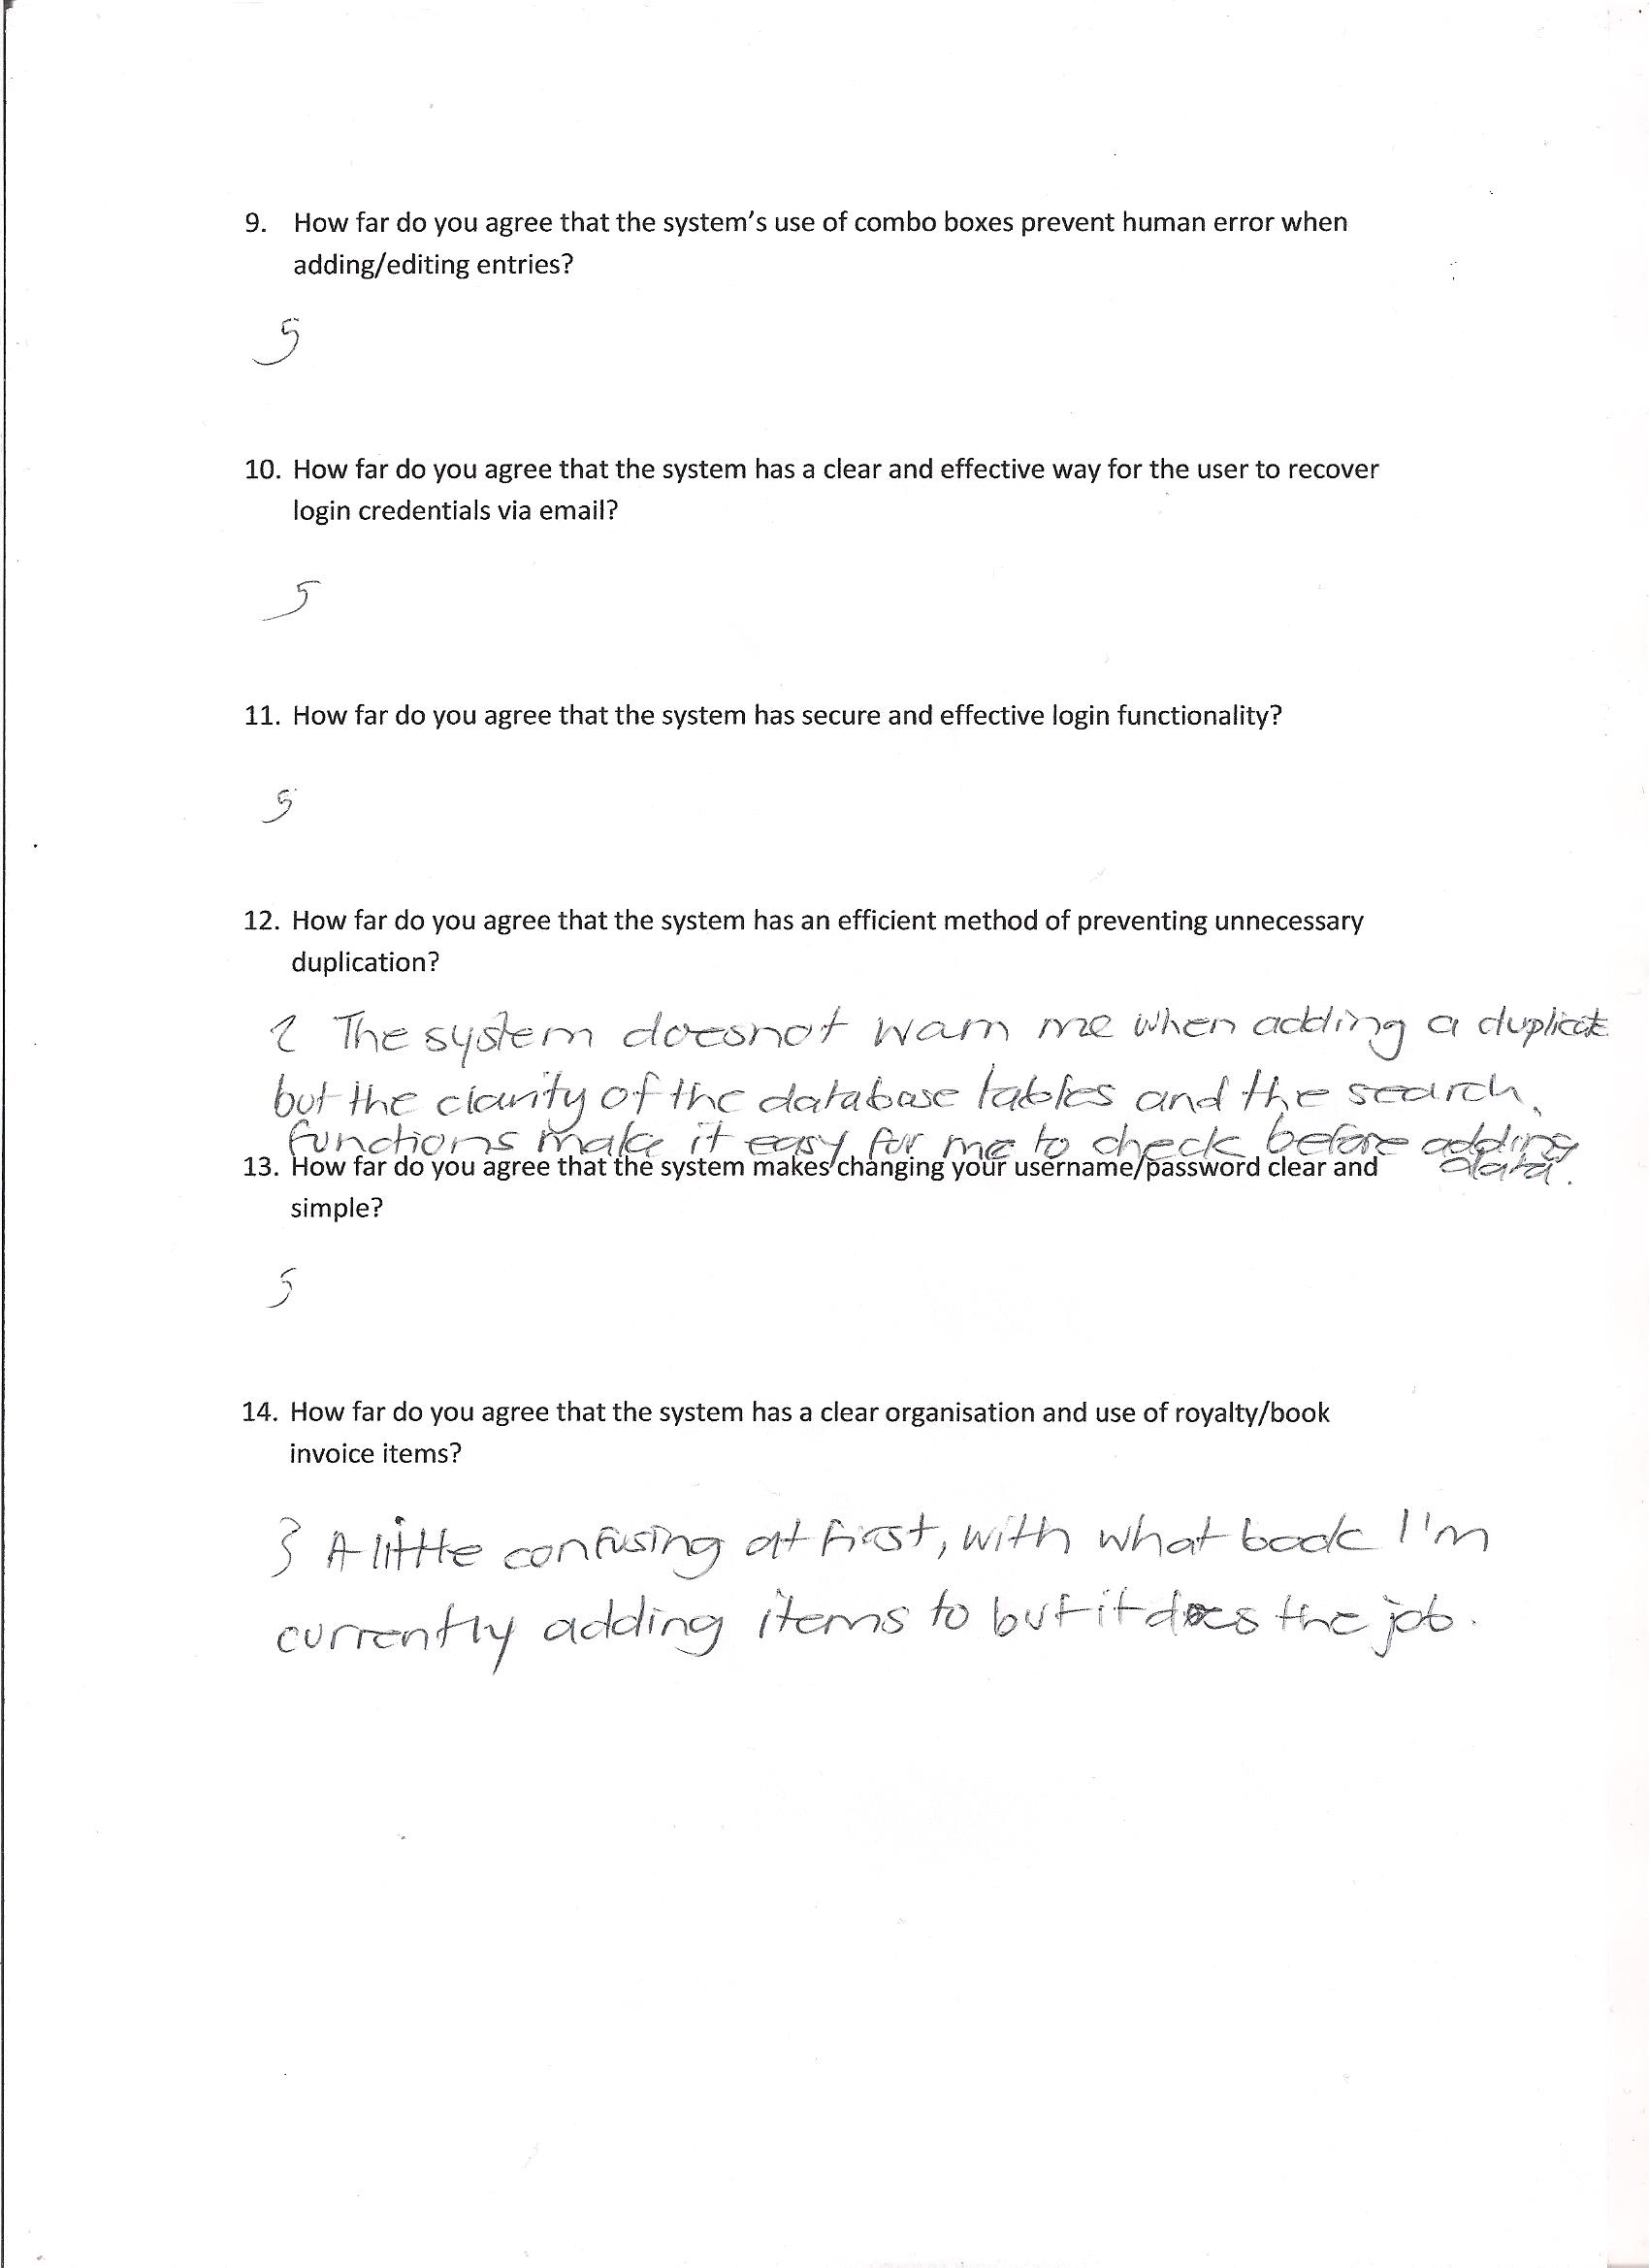 9. How far do you agree that the system's use of combo boxes prevent human error when
adding/editing entries?
5
10. How far do you agree that the system has a clear and effective way for the user to recover
login credentials via email?
5
11. How far do you agree that the system has secure and effective login functionality?
5
12. How far do you agree that the system has an efficient method of preventing unnecessary
duplication?
2 The system doesnot warn me when adding a duplicate
but the clarity of the database tables and the search
functions make it easy for me to check before adding
data.
13. How far do you agree that the system makes changing your username/password clear and
simple?
5
14. How far do you agree that the system has a clear organisation and use of royalty/book
invoice items?
3 A little confusing at first, with what book I'm
currently adding items to but it does the job.